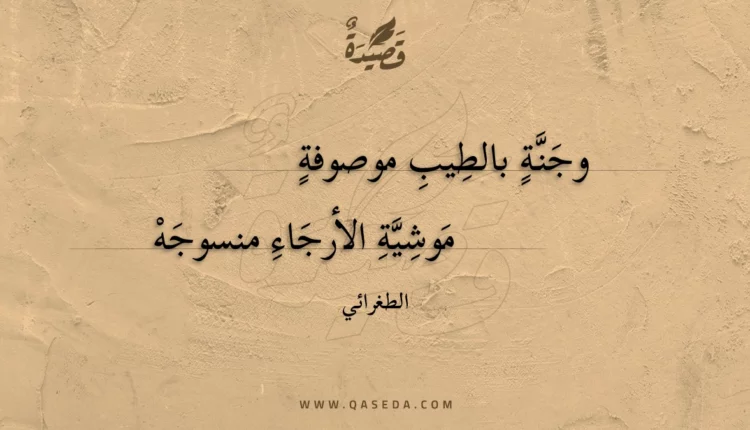 قَصِيدَةٌ
وجَنَّةٍ بالطِيبِ موصوفةٍ
مَوشِيَّةِ الأرجَاءِ منسوجَهْ
الطغرائي
WWW.QASEDA.COM